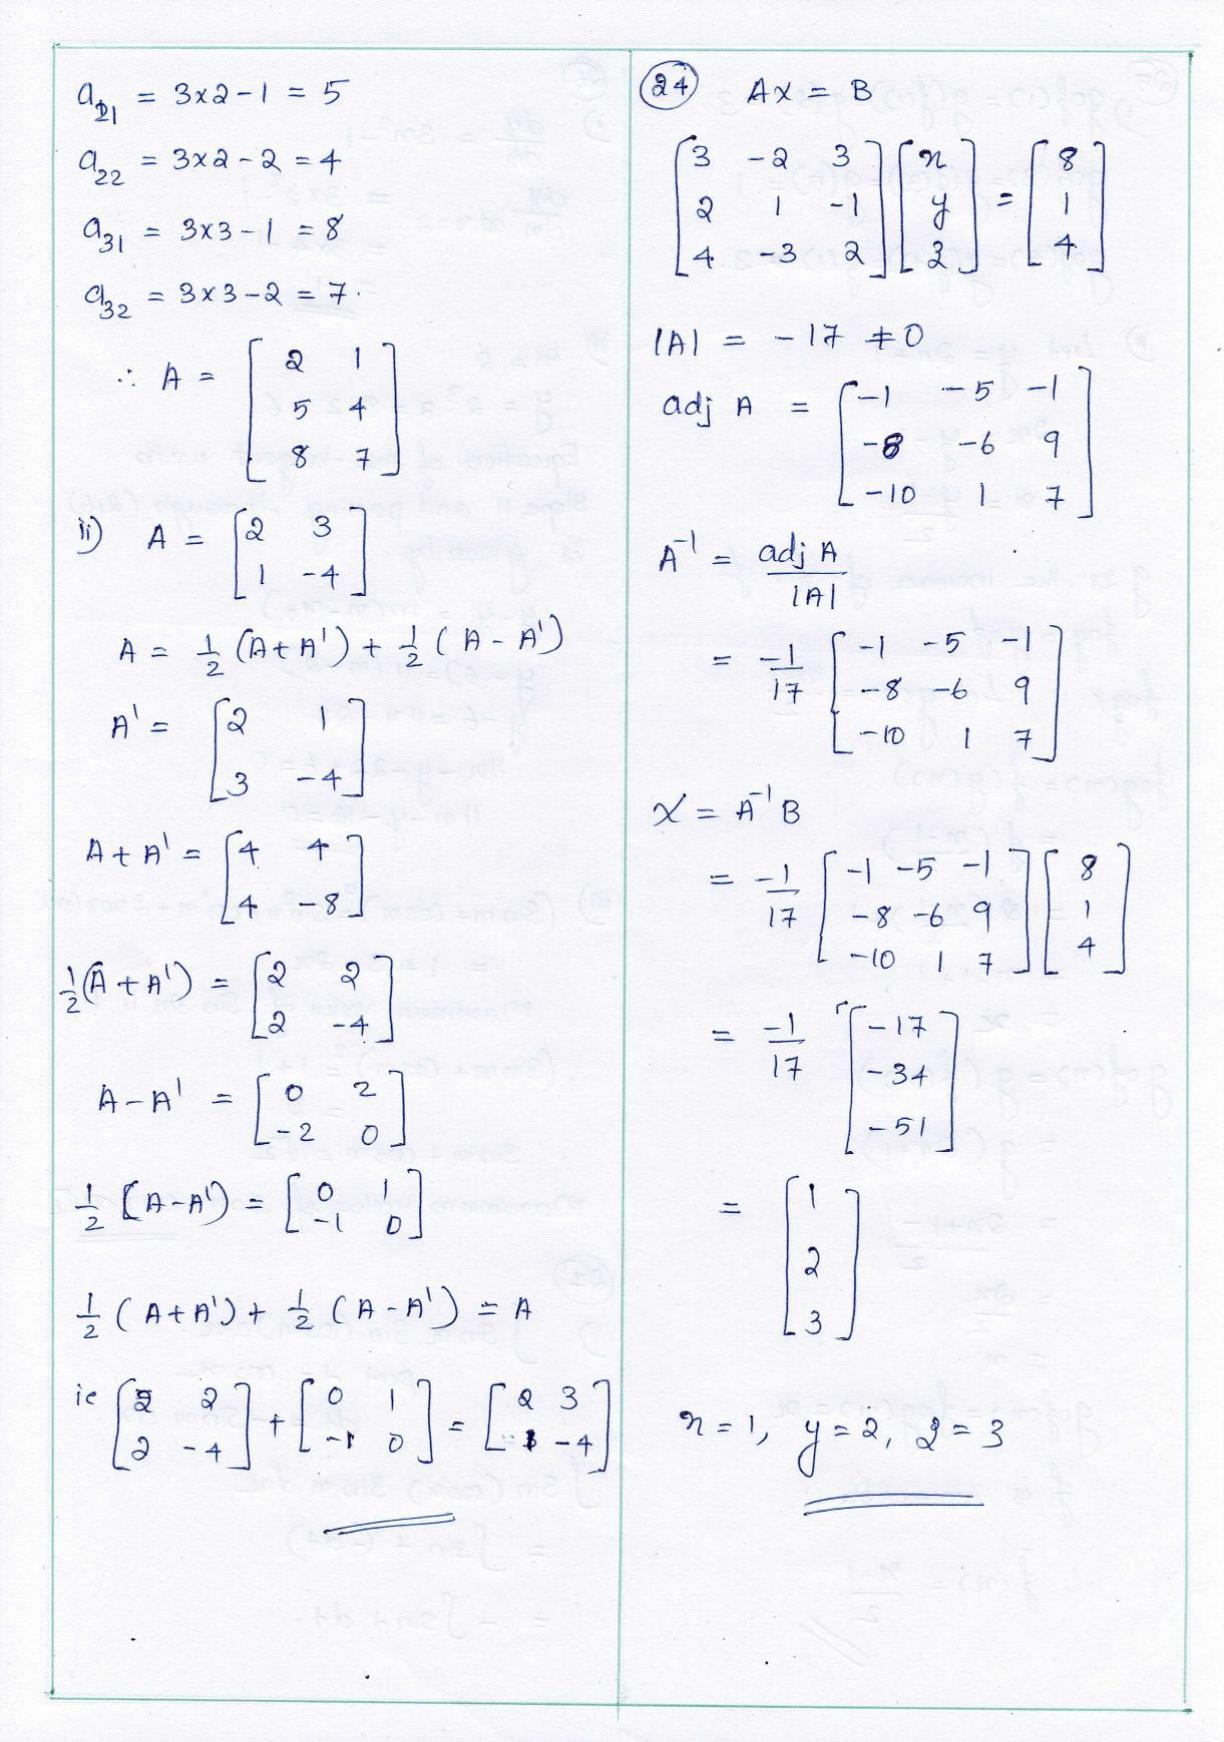 a21 = 3x2-1 = 5
a22 = 3x2-2 = 4
a31 = 3x3-1 = 8
a32 = 3x3-2 = 7.
∴ A = [2 1
5 4
8 7]
ii) A = [2 3
1 -4]
A = 1/2 (A+A') + 1/2 (A-A')
A' = [2 1
3 -4]
A+A' = [4 4
4 -8]
1/2 (A+A') = [2 2
2 -4]
A-A' = [0 2
-2 0]
1/2 (A-A') = [0 1
-1 0]
1/2 (A+A') + 1/2 (A-A') = A
ie [2 2
2 -4] + [0 1
-1 0] = [2 3
1 -4]
24 AX = B
[3 -2 3
2 1 -1
4 -3 2] [x
y
z] = [8
1
4]
|A| = -17 ≠ 0
adj A = [-1 -5 -1
-8 -6 9
-10 1 7]
A^-1 = adj A / |A|
= -1/17 [-1 -5 -1
-8 -6 9
-10 1 7]
X = A^-1 B
= -1/17 [-1 -5 -1
-8 -6 9
-10 1 7] [8
1
4]
= -1/17 [-17
-34
-51]
= [1
2
3]
x=1, y=2, z=3